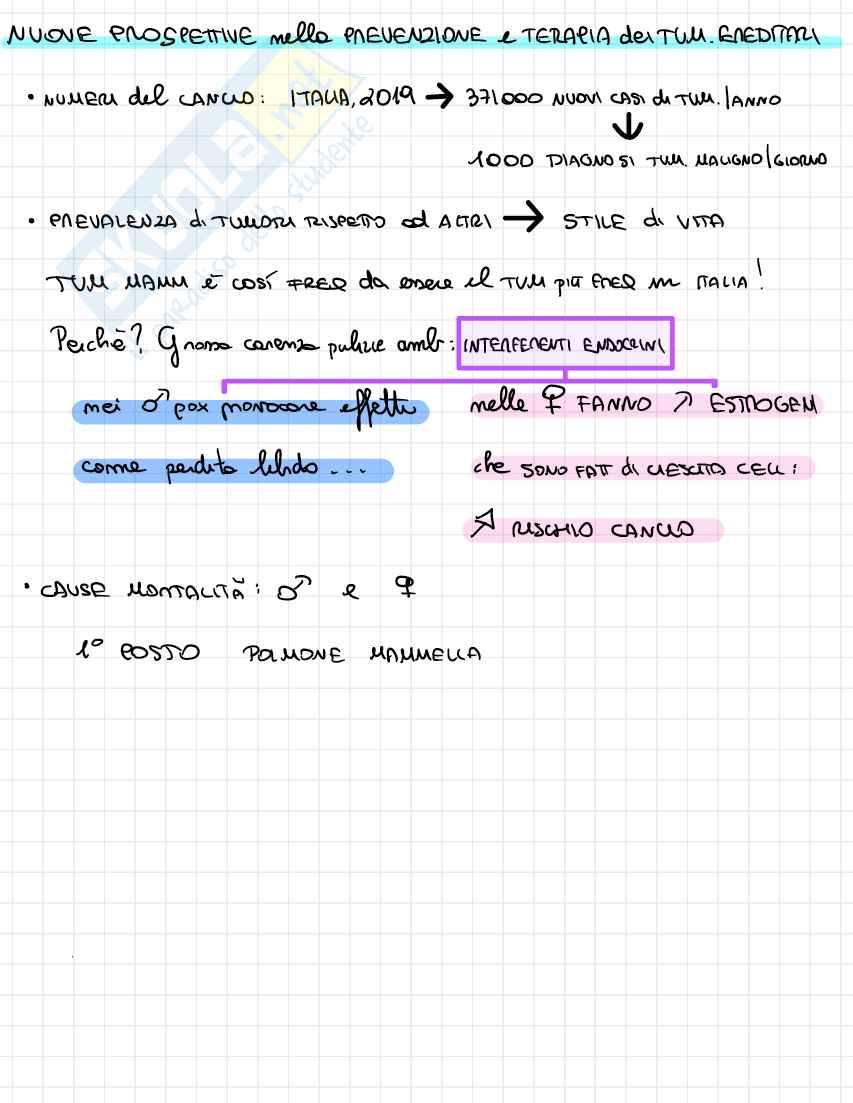 NUOVE PROSPETTIVE nella PREVENZIONE e TERAPIA dei TUM. EREDITARI
• NUMERI del CANCRO: ITALIA, 2019 → 371000 NUOVI CASI di TUM./ANNO
↓
1000 DIAGNOSI TUM. MALIGNO/GIORNO
• PREVALENZA di TUMORI RISPETTO ad ALTRI → STILE di VITA
TUM MAMM è COSÍ FREQ da essere il TUM più FREQ in ITALIA!
Perchè? Grossa carenza pulizie amb: INTERFERENTI ENDOCRINI
nei ♂ pox provocare effetti
come perdita libido...
nelle ♀ FANNO ↗ ESTROGENI
che SONO FATT di CRESCITA CELL:
↗ RISCHIO CANCRO
• CAUSE MORTALITÀ: ♂ e ♀
1° POSTO POLMONE MAMMELLA
SKUOLA.net
paradiso dello studente